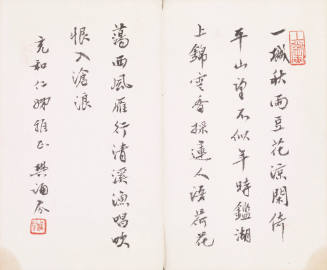 一城秋雨豆花涼閑倚
平山望不似年時鑑湖
上錦雲香採蓮人語荷花
蕩西風雁行清溪漁唱吹
恨入滄浪
充和仁姊雅正 樊誦芬